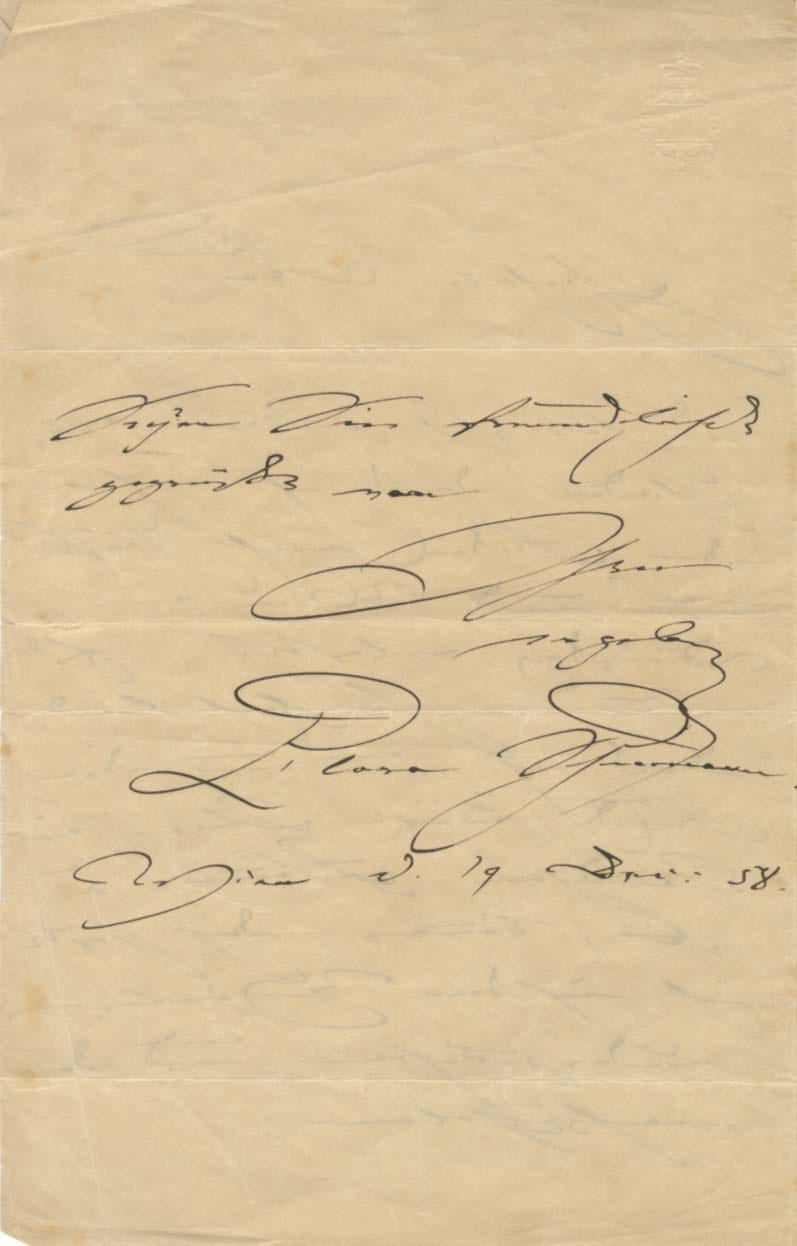 Seyen Sie freundlichst
gegrüßt von
Ihrer
ergeben
Clara Schumann.
Wien d. 19 Dec: 58.